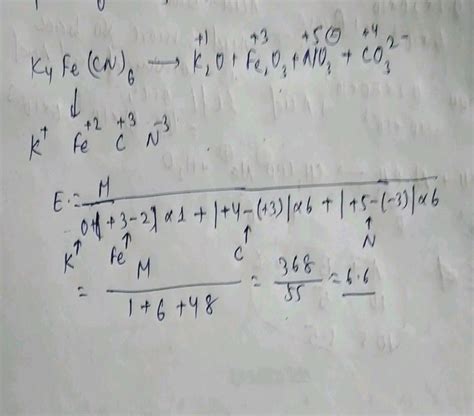 +1 +3 +5 ⊖ +4
K4 Fe (CN)6 → K2O + Fe2O3 + NO3 + CO3 2-
↓
K+ Fe+2 C+3 N-3
E = M
0 + |+3-2| x 1 + |+4-(+3)| x 6 + |+5-(-3)| x 6
K+ Fe C N
= M / 1 + 6 + 48 = 368 / 55 = 6.6